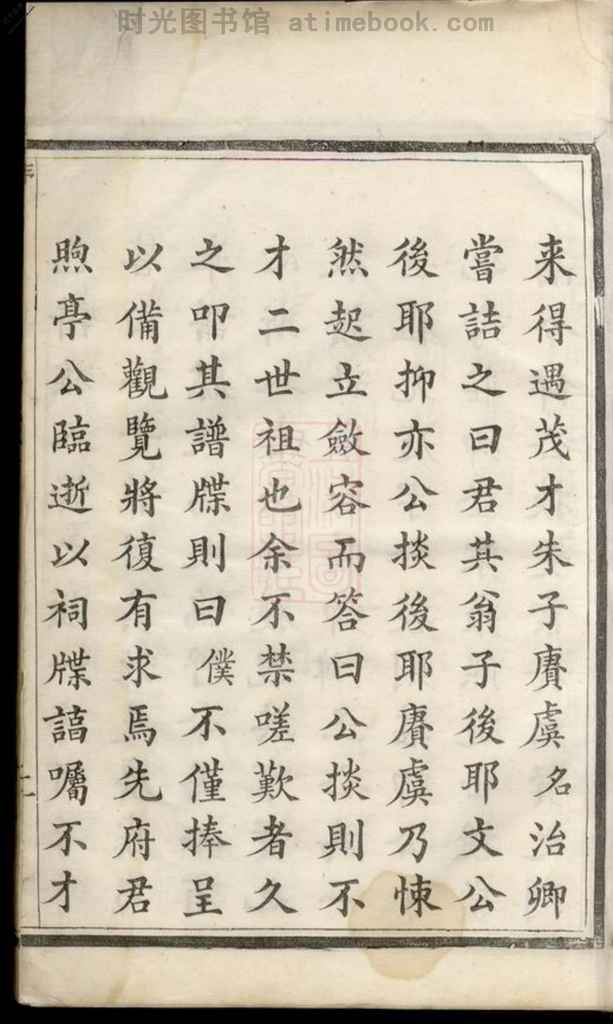 时光图书馆 atimebook.com
来得遇茂才朱子赓虞名治卿
嘗詰之曰君其翁子後耶文公
後耶抑亦公掞後耶賡虞乃悚
然起立斂容而答曰公掞則不
才二世祖也余不禁嗟歎者久
之叩其譜牒則曰僕不僅捧呈
以備觀覽將復有求焉先府君
煦亭公臨逝以祠牒諄囑不才